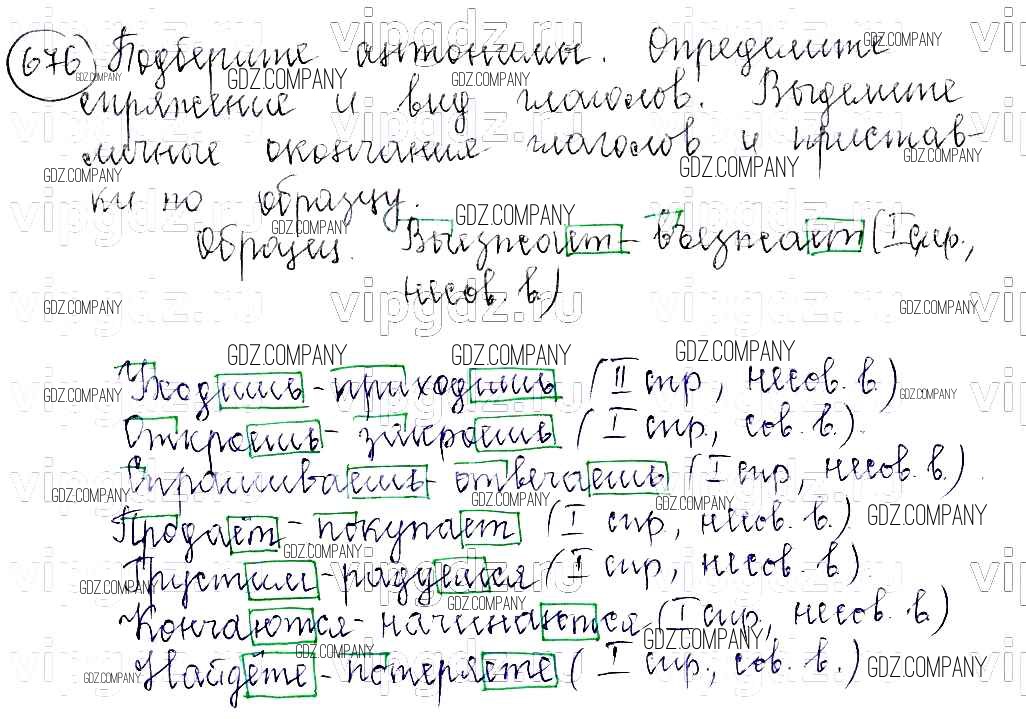 676 Подберите антонимы. Определите
спряжение и вид глаголов. Выделите
личные окончания глаголов и пристав-
ки по образцу.
Образец. Выезжает - въезжает (I спр.,
несов. в.)
Уходишь - приходишь (II спр, несов. в.)
Откроешь - закроешь (I спр., сов. в.).
Спрашиваешь - отвечаешь (I спр, несов. в.).
Продаёт - покупает (I спр, несов. в.)
Грустим - радуемся (I спр, несов. в.).
Кончаются - начинаются (I спр, несов. в.)
Найдёте - потеряете (I спр., сов. в.)
GDZ.COMPANY
vipgdz.ru